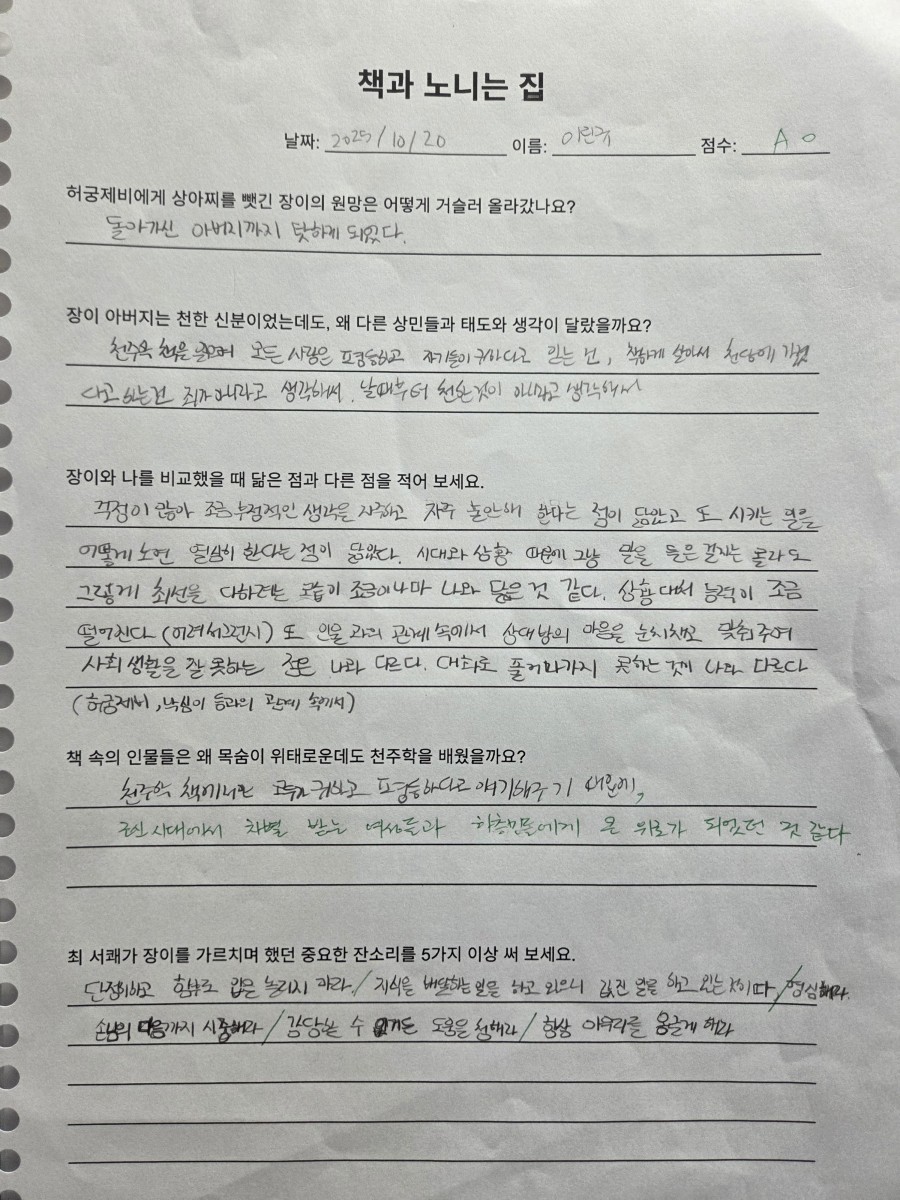 책과 노니는 집
날짜: 2025/10/20 이름: 이린규 점수: A O
허궁제비에게 상아찌를 뺏긴 장이의 원망은 어떻게 거슬러 올라갔나요?
돌아가신 아버지까지 탓하게 되었다.
장이 아버지는 천한 신분이었는데도, 왜 다른 상민들과 태도와 생각이 달랐을까요?
천주학 책을 모든 사람은 평등하고 자기들이 귀하다고 믿는 건, 착하게 살아서 천당에 가겠
다고 하는건 죄가 아니라고 생각해서. 날때부터 천한것이 아니라고 생각해서
장이와 나를 비교했을 때 닮은 점과 다른 점을 적어 보세요.
걱정이 많아 조금 부정적인 생각을 자주하고 자주 불안해 한다는 점이 닮았고 또 시키는 일을
어떻게 보면 열심히 한다는 점이 닮았다. 시대와 상황 때문에 그냥 말을 들은 걸지는 몰라도
그렇게 최선을 다하려는 모습이 조금이나마 나와 닮은 것 같다. 상황 대처 능력이 조금
떨어진다 ( ) 또 인물 과의 관계 속에서 상대방의 마음을 눈치채고 맞춰주며
사회 생활을 잘 못하는 점은 나와 다르다. 대화로 풀어나가지 못하는 것에 나와 다르다
(허궁제비, 낙심이 등과의 관계 속에서)
책 속의 인물들은 왜 목숨이 위태로운데도 천주학을 배웠을까요?
천주학 책에서는 모두가 귀하고 평등하다고 얘기해주기 때문에,
조선 시대에서 차별 받는 여성들과 하층민들에게 온 위로가 되었던 것 같다
최 서쾌가 장이를 가르치며 했던 중요한 잔소리를 5가지 이상 써 보세요.
단정히하고 함부로 입을 놀리지 마라./ 지식을 배달하는 일을 하고 있으니 값진 일을 하고 있는 /명심해라.
손님의 마음까지 시중해라/ 감당할 수 없거든 도움을 청해라/ 항상 아무리를 옹글게 해라